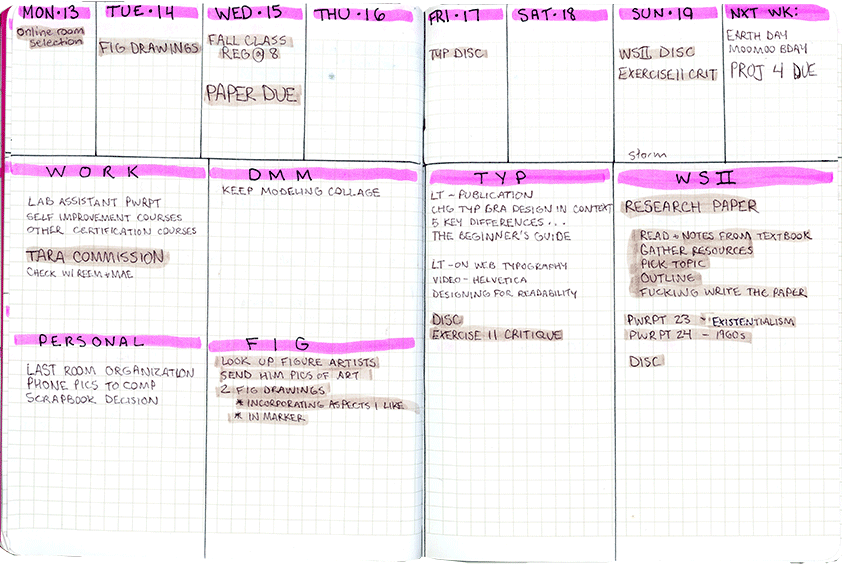 MON·13
online room
selection
TUE·14
FIG DRAWINGS
WED·15
FALL CLASS
REG @ 8
PAPER DUE
THU·16
FRI·17
TYP DISC
SAT·18
SUN·19
WSII DISC
EXERCISE 11 CRIT
storm
NXT WK:
EARTH DAY
MOOMOO BDAY
PROJ 4 DUE
WORK
LAB ASSISTANT PWRPT
SELF IMPROVEMENT COURSES
OTHER CERTIFICATION COURSES
TARA COMMISSION
CHECK W/ REEM + MAE
DMM
KEEP MODELING COLLAGE
PERSONAL
LAST ROOM ORGANIZATION
PHONE PICS TO COMP
SCRAPBOOK DECISION
FIG
LOOK UP FIGURE ARTISTS
SEND HIM PICS OF ART
2 FIG DRAWINGS
* INCORPORATING ASPECTS I LIKE
* IN MARKER
TYP
LT - PUBLICATION
CHG TYP GRA DESIGN IN CONTEXT
5 KEY DIFFERENCES...
THE BEGINNER'S GUIDE
LT - ON WEB TYPOGRAPHY
VIDEO - HELVETICA
DESIGNING FOR READABILITY
DISC
EXERCISE 11 CRITIQUE
WSII
RESEARCH PAPER
READ + NOTES FROM TEXTBOOK
GATHER RESOURCES
PICK TOPIC
OUTLINE
FUCKING WRITE THE PAPER
PWRPT 23 - EXISTENTIALISM
PWRPT 24 - 1960s
DISC